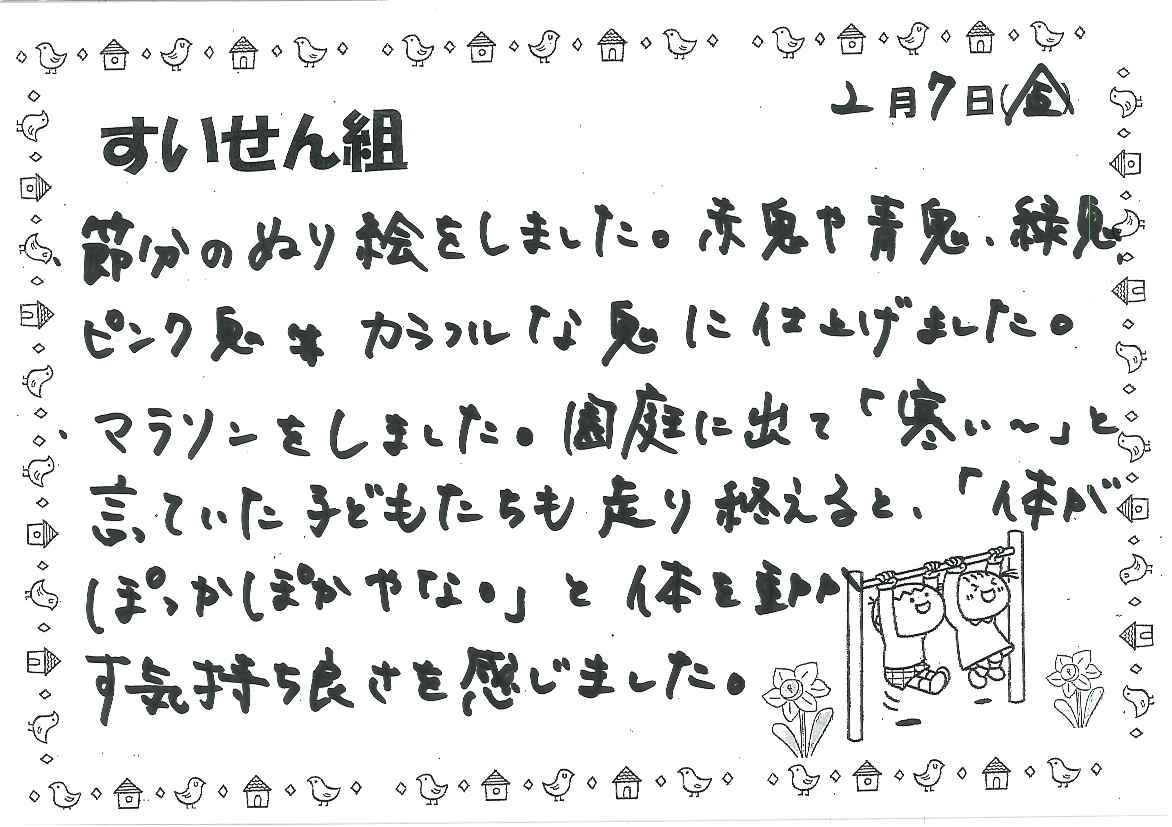 2月7日(金)
すいせん組
節分のぬり絵をしました。赤鬼や青鬼、緑鬼、
ピンク鬼等カラフルな鬼に仕上げました。
マラソンをしました。園庭に出て「寒い~」と
言っていた子どもたちも走り終えると、「体が
ぽっかぽかやな。」と体を動か
す気持ち良さを感じました。